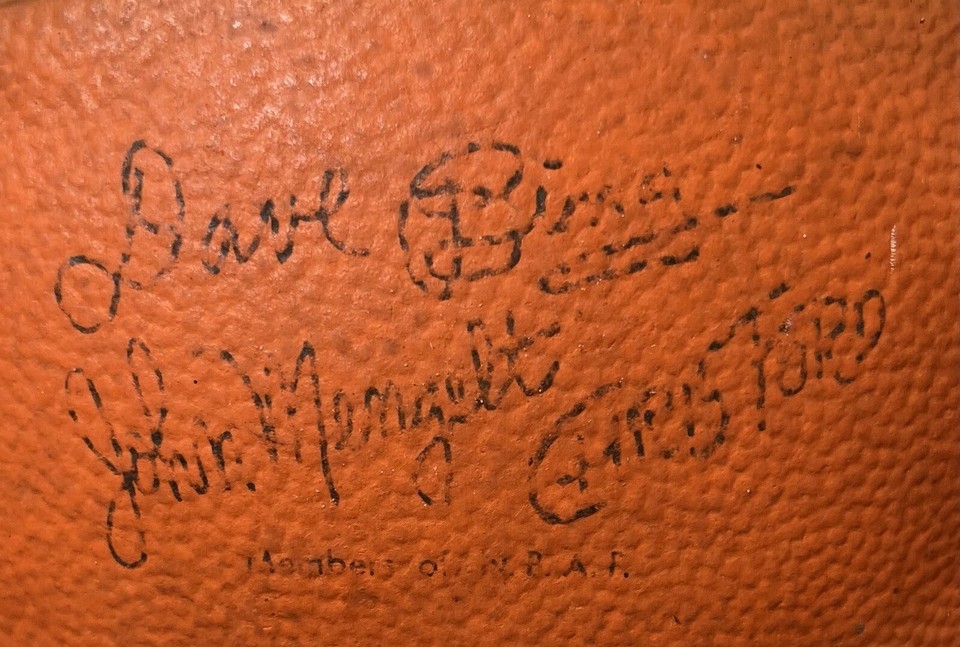 Dave Bing
John Mengelt
Chris Ford
Members of N.B.A.P.